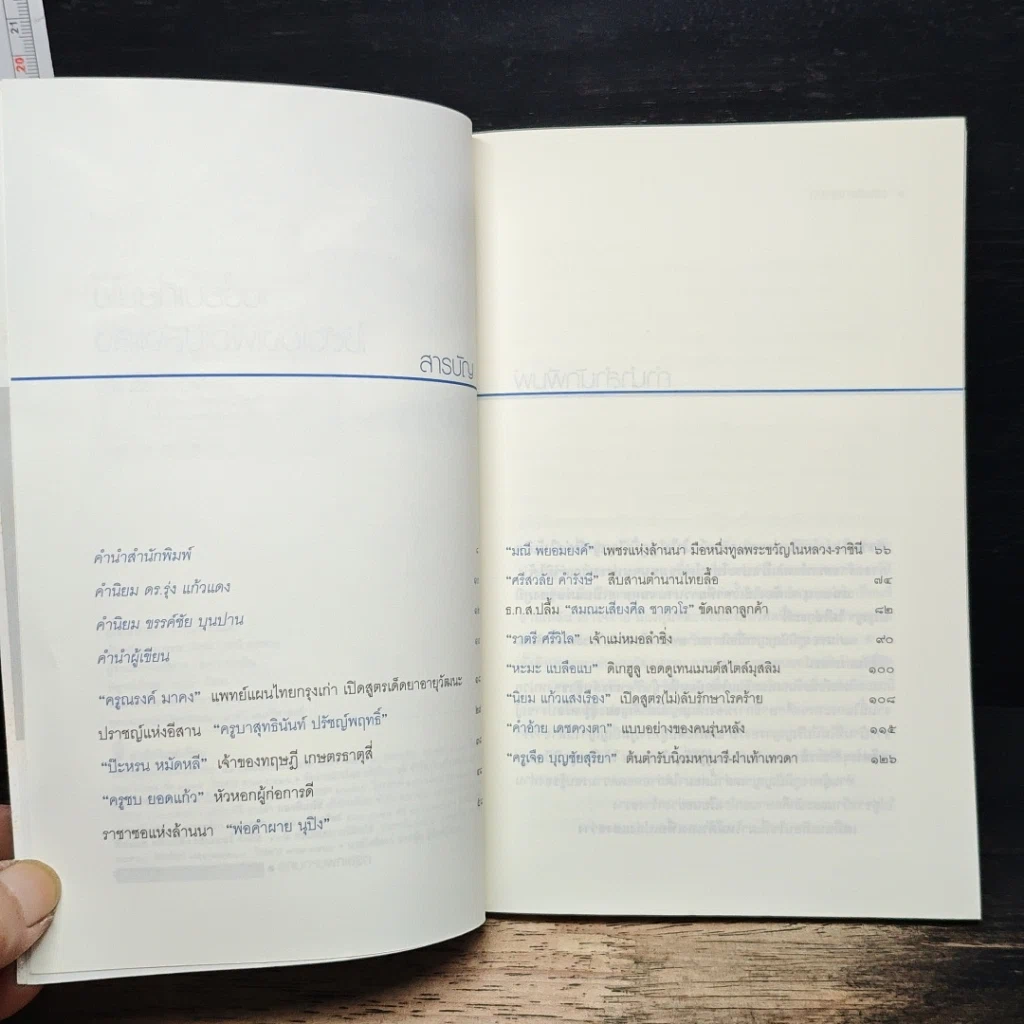 21
20
สารบัญ
คำนำสำนักพิมพ์
คำนิยม ดร.รุ่ง แก้วแดง
คำนิยม ขรรค์ชัย บุนปาน
คำนำผู้เขียน
“ครูณรงค์ มาคง” แพทย์แผนไทยกรุงเก่า เปิดสูตรเด็ดยาอายุวัฒนะ
ปราชญ์แห่งอีสาน “ครูบาสุทธินันท์ ปรัชญ์พฤทธิ์”
“ป๊ะหรน หมัดหลี” เจ้าของทฤษฎี เกษตรธาตุสี่
“ครูชบ ยอดแก้ว” หัวหอกผู้ก่อการดี
ราชาซอแห่งล้านนา “พ่อคำผาย นุปิง”
“มณี พยอมยงค์” เพชรแห่งล้านนา มือหนึ่งทูลพระขวัญในหลวง-ราชินี ๖๖
“ศรีสวลัย คำรังษี” สืบสานตำนานไทยลื้อ ๗๔
ธ.ก.ส.ปลื้ม “สมณะเสียงศีล ชาตวโร” ขัดเกลาลูกค้า ๘๒
“ราตรี ศรีวิไล” เจ้าแม่หมอลำซิ่ง ๙๐
“หะมะ แบลือแบ” ดิเกฮูลู เอดดูเทนเมนต์สไตล์มุสลิม ๑๐๐
“นิยม แก้วแสงเรือง” เปิดสูตร(ไม่)ลับรักษาโรคร้าย ๑๐๘
“คำอ้าย เดชดวงตา” แบบอย่างของคนรุ่นหลัง ๑๑๕
“ครูเจือ บุญชัยสุริยา” ต้นตำรับนิ้วมหานารี-ฝ่าเท้าเทวดา ๑๒๖